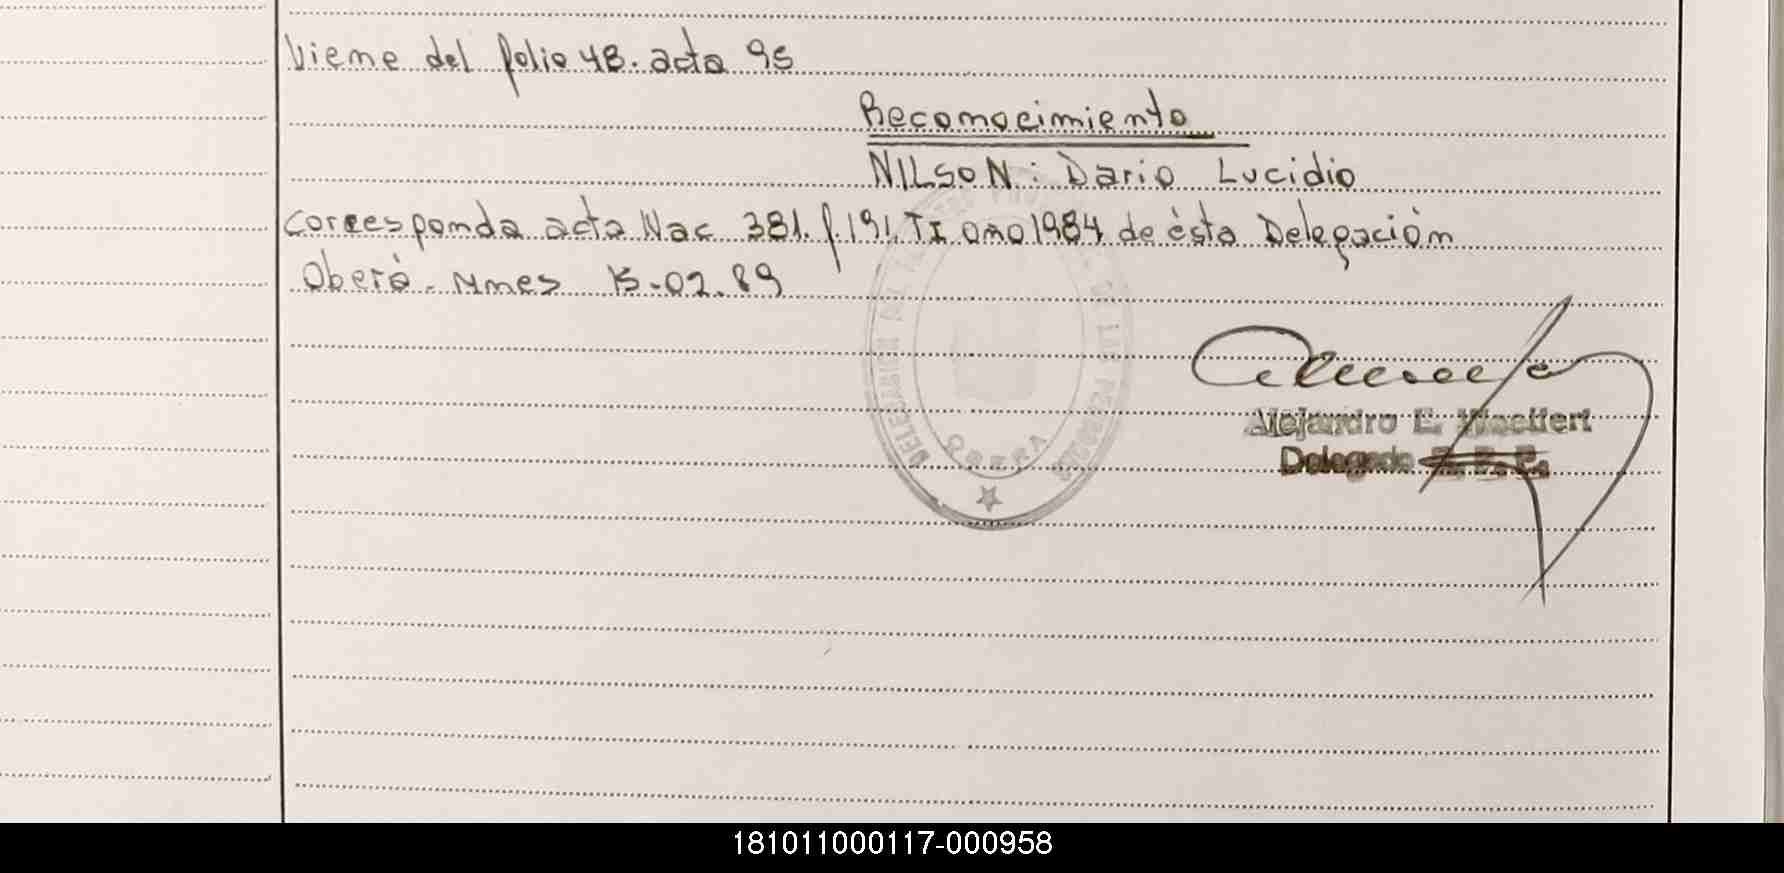 Viene del folio 48. acta 95
Reconocimiento
NILSON: Dario Lucidio
Corresponda acta Nac 381. f. 191. TI año 1984 de ésta Delegación
Oberá - Mnes 15-02.89
Alejandro E.
Delegado
DELEGACION DEL DE LAS PERSONAS
OBERA
181011000117-000958